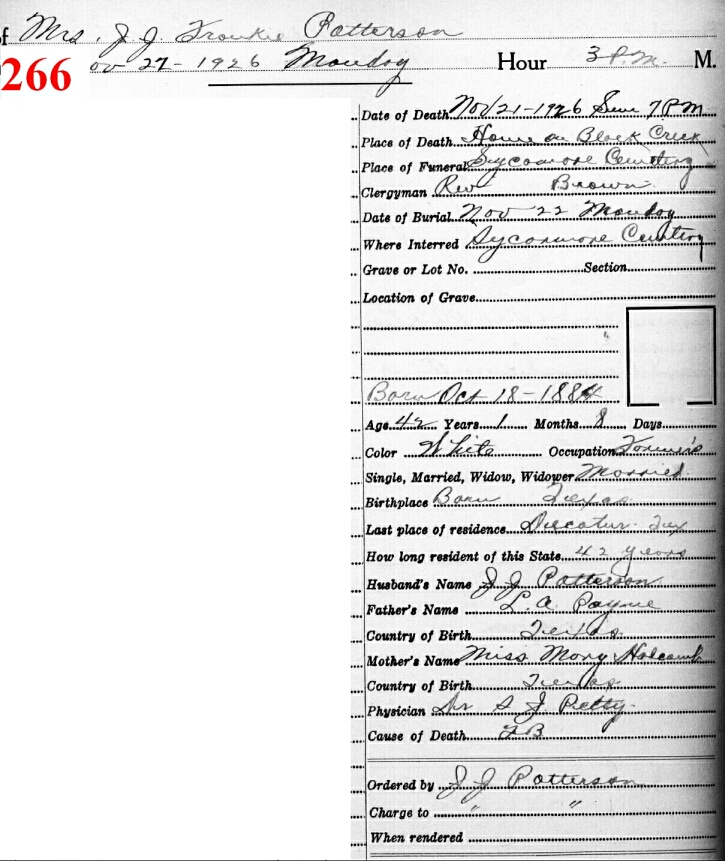 of Mrs. J. J. Frankie Patterson
266 ov 22 - 1926 Monday Hour 3 P.M. M.
Date of Death Nov 21 - 1926 Sun 7 PM
Place of Death Home on Black Creek
Place of Funeral Sycamore Cemetery
Clergyman Rev Brown
Date of Burial Nov 22 Monday
Where Interred Sycamore Cemetery
Grave or Lot No. Section
Location of Grave
Born Oct 18 - 1884
Age 42 Years 1 Months 8 Days
Color White Occupation
Single, Married, Widow, Widower Married
Birthplace Born Texas
Last place of residence Decatur Tex
How long resident of this State 42 years
Husband's Name J J Patterson
Father's Name L. A Payne
Country of Birth Texas
Mother's Name Miss Mary Holcomb
Country of Birth Texas
Physician Dr S J Petty
Cause of Death TB
Ordered by J J Patterson
Charge to " "
When rendered